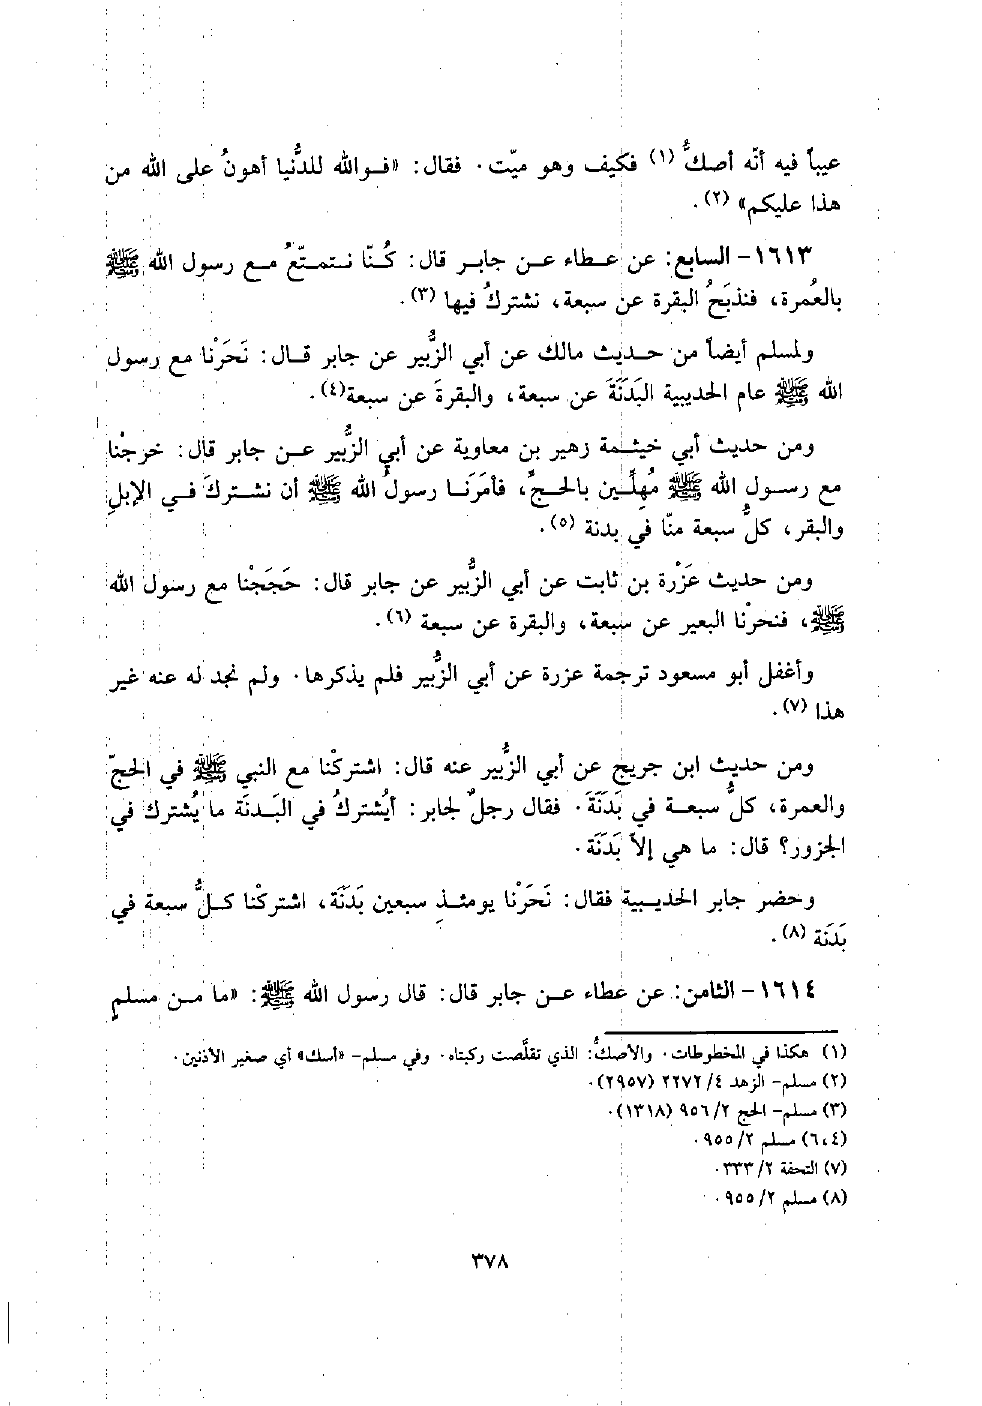 عيباً فيه أنّه أصكُّ (١) فكيف وهو ميّت. فقال: «فوالله للدُّنيا أهونُ على الله من
هذا عليكم» (٢).
١٦١٣- السابع: عن عطاء عن جابر قال: كُنّا نتمتّعُ مع رسول الله ﷺ
بالعُمرة، فنذبَحُ البقرة عن سبعة، نشتركُ فيها (٣).
ولمسلم أيضاً من حديث مالك عن أبي الزُّبير عن جابر قال: نَحَرْنا مع رسول
الله ﷺ عام الحديبية البَدَنَةَ عن سبعة، والبقرةَ عن سبعة(٤).
ومن حديث أبي خيثمة زهير بن معاوية عن أبي الزُّبير عن جابر قال: خرجْنا
مع رسول الله ﷺ مُهِلِّين بالحجِّ، فأمَرَنا رسولُ الله ﷺ أن نشتركَ في الإبلِ
والبقر، كلُّ سبعة منّا في بدنة (٥).
ومن حديث عَزْرة بن ثابت عن أبي الزُّبير عن جابر قال: حَجَجْنا مع رسول الله
ﷺ، فنحرْنا البعير عن سبعة، والبقرة عن سبعة (٦).
وأغفل أبو مسعود ترجمة عزرة عن أبي الزُّبير فلم يذكرها. ولم نجد له عنه غير
هذا (٧).
ومن حديث ابن جريج عن أبي الزُّبير عنه قال: اشتركْنا مع النبي ﷺ في الحجّ
والعمرة، كلُّ سبعة في بَدَنَةَ. فقال رجلٌ لجابر: أيُشتركُ في البَدنَة ما يُشترك في
الجزور؟ قال: ما هي إلاّ بَدَنَة.
وحضر جابر الحديبية فقال: نَحَرْنا يومئذٍ سبعين بَدَنَة، اشتركْنا كلُّ سبعة في
بَدَنَة (٨).
١٦١٤- الثامن: عن عطاء عن جابر قال: قال رسول الله ﷺ: «ما من مسلمٍ
(١) هكذا في المخطوطات. والأصكُّ: الذي تقلَّصت ركبتاه. وفي مسلم- «أسك» أي صغير الأذنين.
(٢) مسلم- الزهد ٤/ ٢٢٧٢ (٢٩٥٧).
(٣) مسلم- الحج ٢/ ٩٥٦ (١٣١٨).
(٦،٤) مسلم ٢/ ٩٥٥.
(٧) التحفة ٢/ ٣٣٣.
(٨) مسلم ٢/ ٩٥٥.
٣٧٨